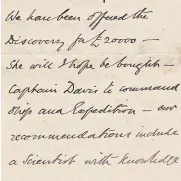 We have been offered the
Discovery for £20000 –
She will I hope be bought –
Captain Davis to command
Ship and Expedition – our
recommendations include
a Scientist with knowledge